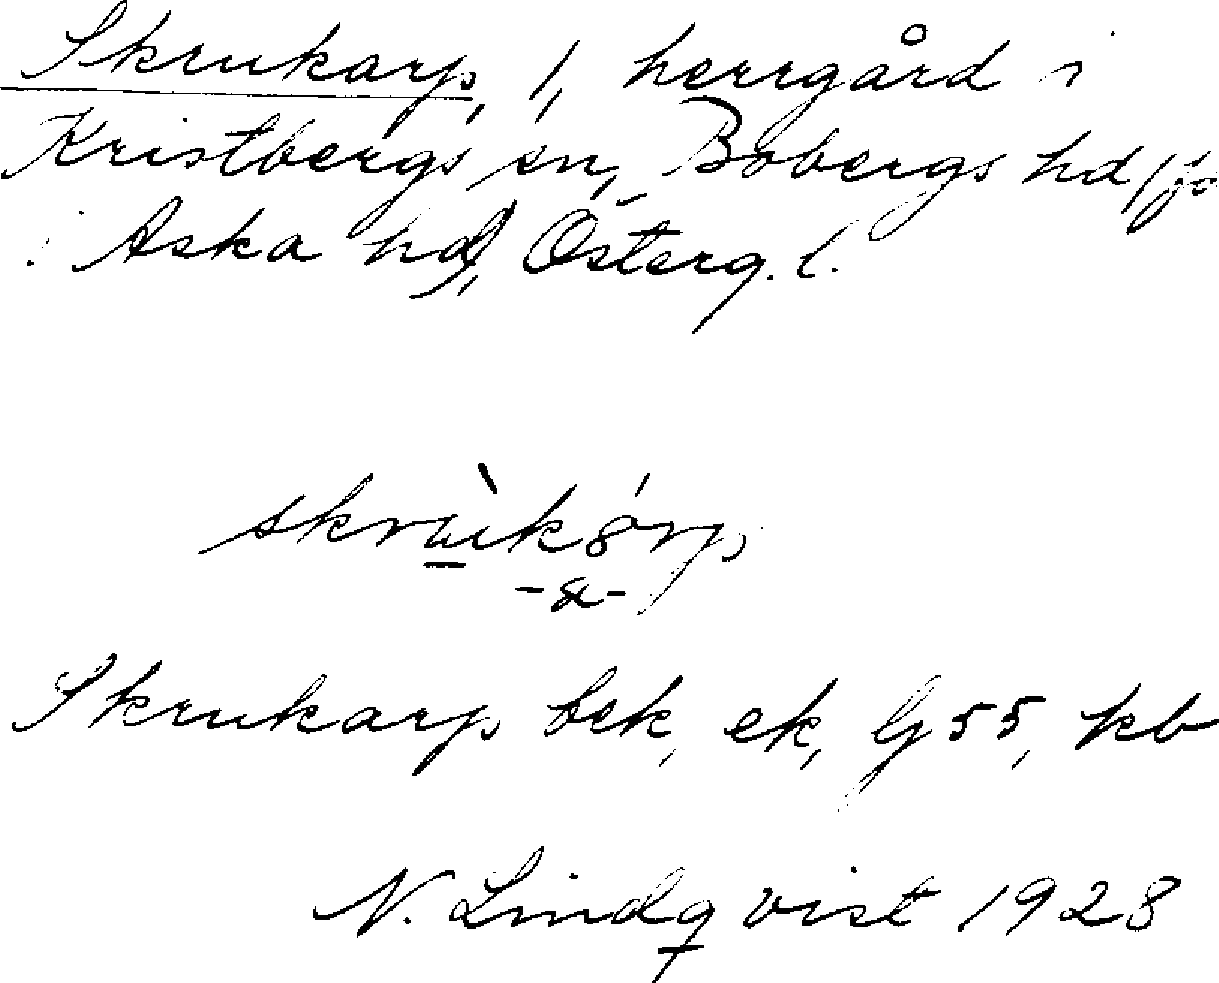 Skrukarp, 1, herrgård i
Kristbergs sn, Bobergs hd (jo
i Aska hd), Österg. l.
skrùkárp
-a-
Skrukarp bek, ek, Gj 55, kb
N. Lindqvist 1928